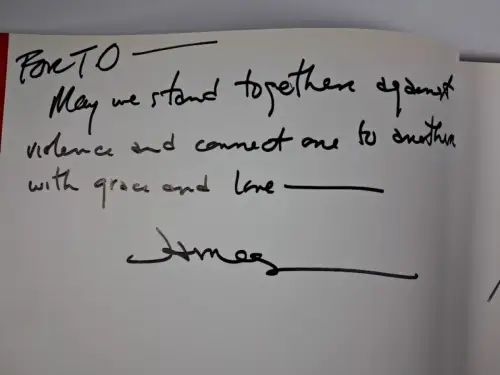 For TO
May we stand together against
violence and connect one to another
with grace and love